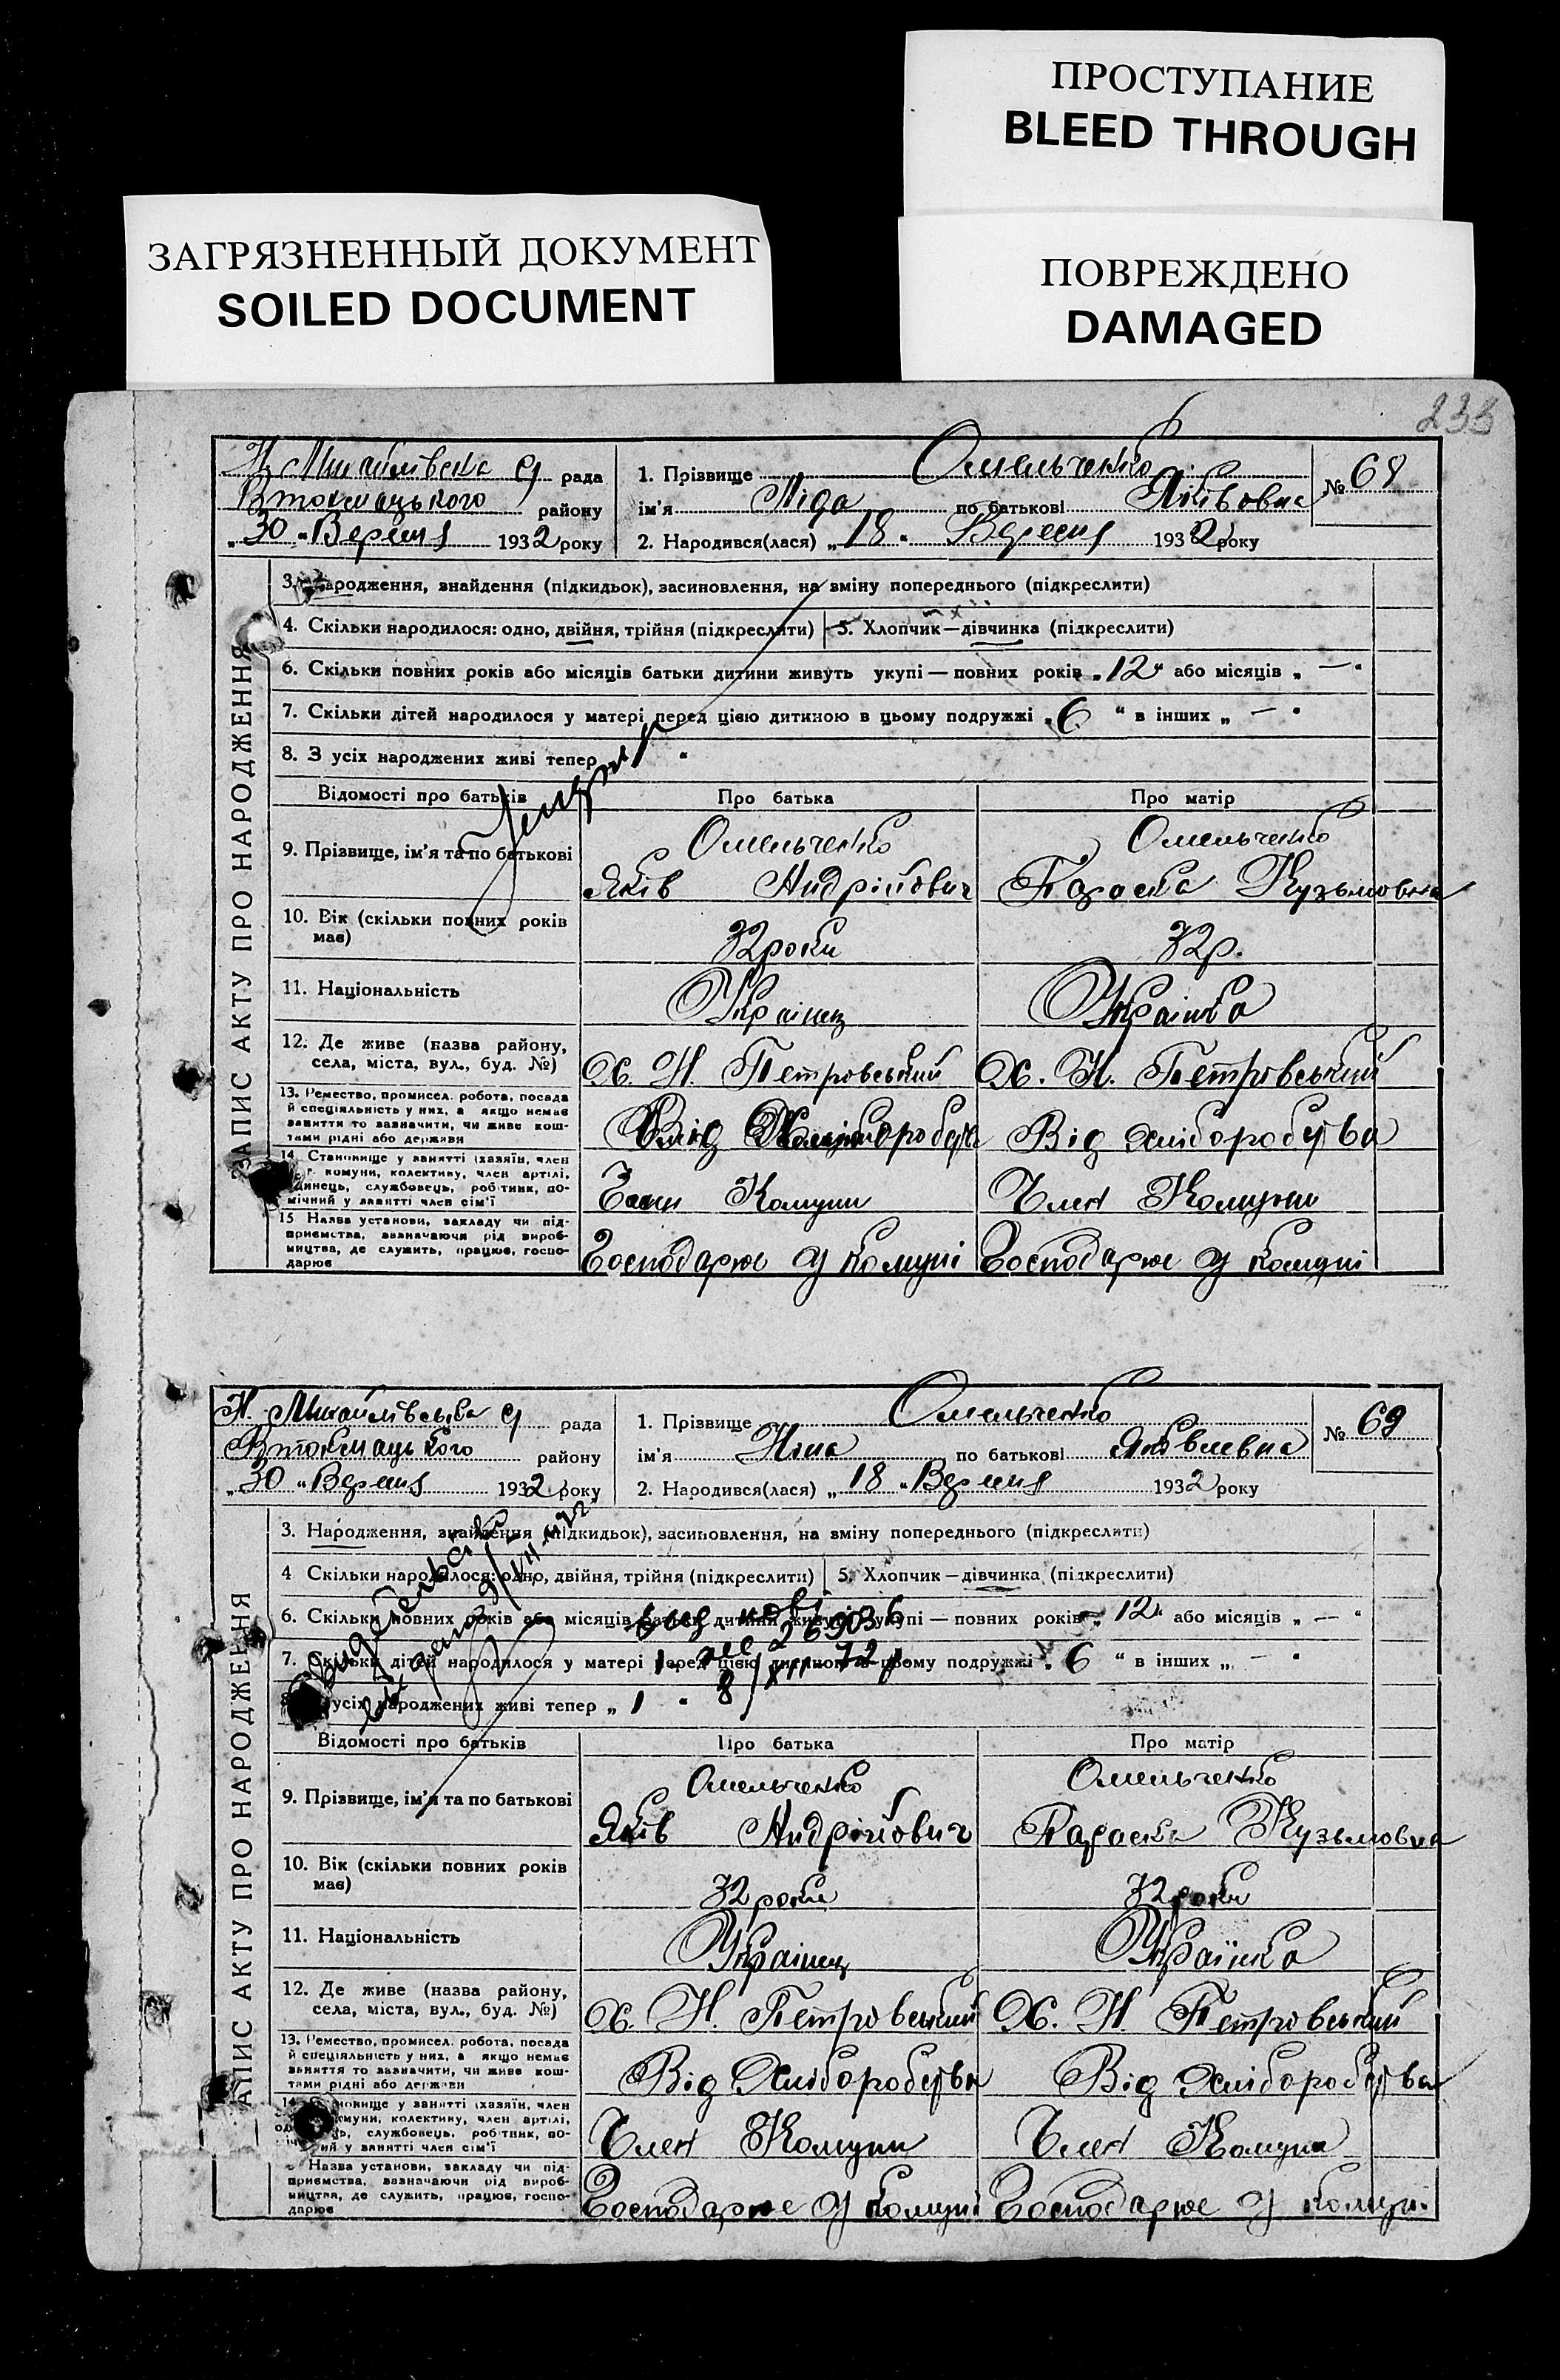 ПРОСТУПАНИЕ
BLEED THROUGH
ЗАГРЯЗНЕННЫЙ ДОКУМЕНТ
SOILED DOCUMENT
ПОВРЕЖДЕНО
DAMAGED
233
ЗАПИС АКТУ ПРО НАРОДЖЕННЯ
Н Михайлівська с рада
Втокмацького району
„30" Вересня 1932 року
1. Прізвище Омельченко
ім'я Ліда по батькові Яківовна
2. Народився(лася) „18" Вересня 1932 року
№ 68
3. Народження, знайдення (підкидьок), засиновлення, на зміну попереднього (підкреслити)
4. Скільки народилося: одно, двійня, трійня (підкреслити) 5. Хлопчик—дівчинка (підкреслити)
6. Скільки повних років або місяців батьки дитини живуть укупі — повних років „12" або місяців „—"
7. Скільки дітей народилося у матері перед цією дитиною в цьому подружжі „6" в інших „—"
8. З усіх народжених живі тепер
Відомості про батьків Про батька Про матір
9. Прізвище, ім'я та по батькові
Омельченко Яків Андрійович
Омельченко Параска Кузьмовна
10. Вік (скільки повних років має) 32 роки 32 р.
11. Національність Українец Українка
12. Де живе (назва району, села, міста, вул., буд. №) Х. Н. Петровський Х. Н. Петровський
13. Ремество, промисел, робота, посада й спеціяльність у них, а якщо немає заняття то зазначити, чи живе коштами рідні або держави
Від Хліборобства Від хліборобства
14. Становище у занятті (хазяїн, член комуни, колективу, член артілі, одинець, службовець, робітник, помічний у занятті член сім'ї
Член Комуни Член Комуни
15 Назва установи, закладу чи підприємства, зазначаючи рід виробництва, де служить, працює, господарює
Господарює у комуні Господарює у комуні
ЗАПИС АКТУ ПРО НАРОДЖЕННЯ
Н. Михайлівська с рада
Втокмацького району
„30" Вересня 1932 року
1. Прізвище Омельченко
ім'я Ніна по батькові Яковлевна
2. Народився(лася) „18" Вересня 1932 року
№ 69
3. Народження, знайдення (підкидьок), засиновлення, на зміну попереднього (підкреслити)
4 Скільки народилося: одно, двійня, трійня (підкреслити) 5. Хлопчик—дівчинка (підкреслити)
6. Скільки повних років або місяців батьки дитини живуть укупі — повних років „12" або місяців „—"
7. Скільки дітей народилося у матері перед цією дитиною в цьому подружжі „6" в інших „—"
8. З усіх народжених живі тепер „1"
Відомості про батьків Про батька Про матір
9. Прізвище, ім'я та по батькові
Омельченко Яків Андрійович
Омельченко Параска Кузьмовна
10. Вік (скільки повних років має) 32 роки 32 роки
11. Національність Українец Українка
12. Де живе (назва району, села, міста, вул., буд. №) Х. Н. Петровський Х. Н. Петровський
13. Ремество, промисел, робота, посада й спеціяльність у них, а якщо немає заняття то зазначити, чи живе коштами рідні або держави
Від Хліборобства Від хліборобства
14. Становище у занятті (хазяїн, член комуни, колективу, член артілі, службовець, робітник, помічний у занятті член сім'ї
Член Комуни Член Комуни
Назва установи, закладу чи підприємства, зазначаючи рід виробництва, де служить, працює, господарює
Господарює у комуні Господарює у комуні